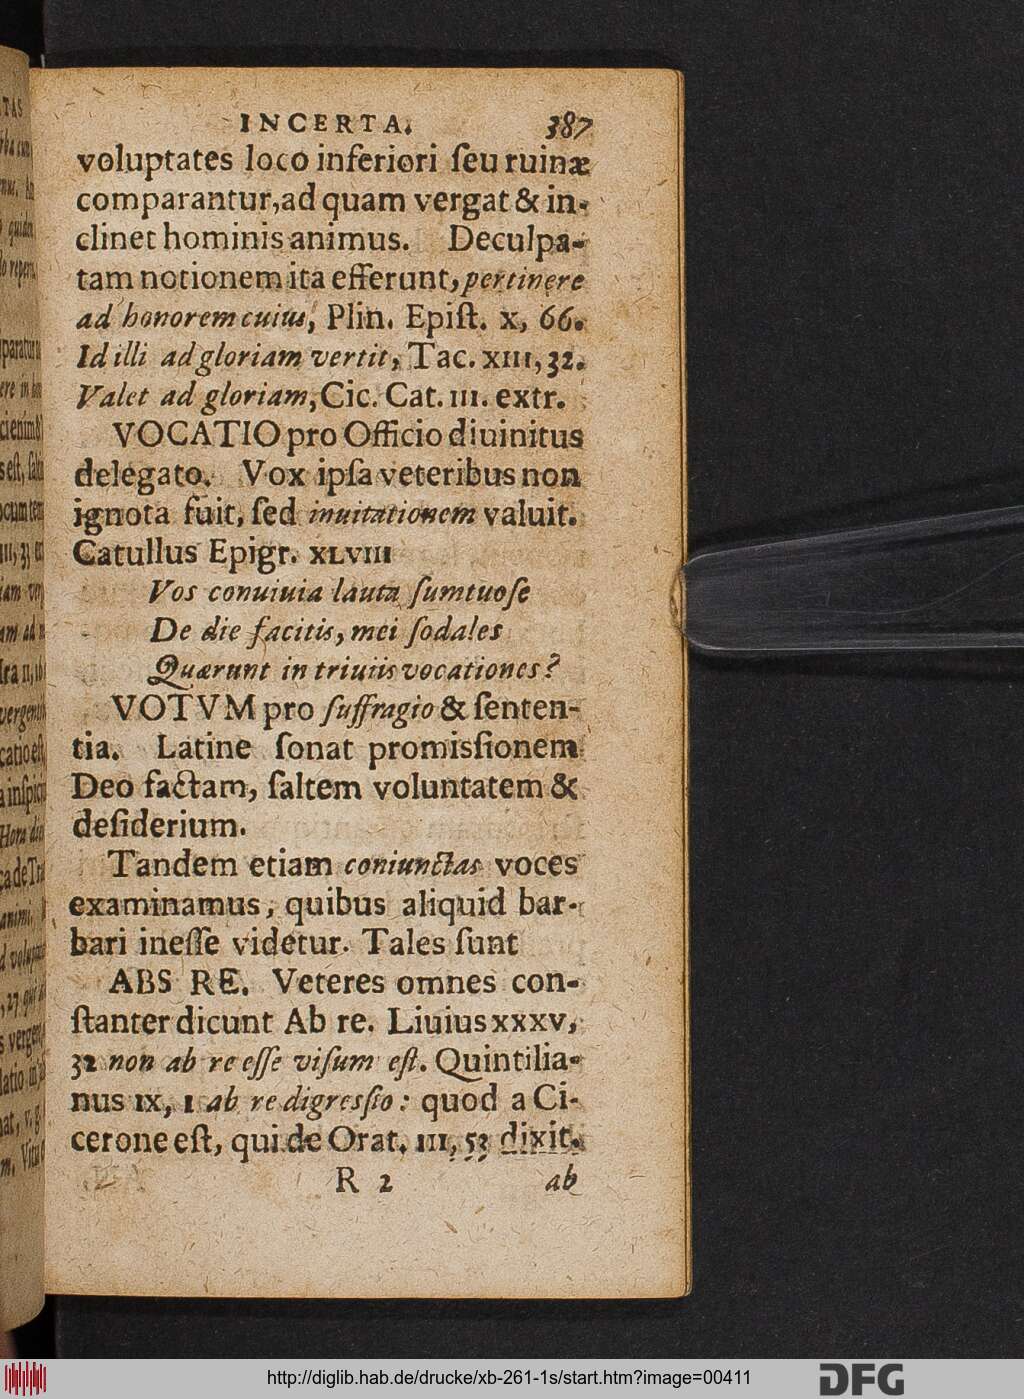 INCERTA. 387
voluptates loco inferiori ſeu ruinæ
comparantur, ad quam vergat & in-
clinet hominis animus. Deculpa-
tam notionem ita efferunt, pertinere
ad honorem cuius, Plin. Epiſt. x, 66.
Id illi ad gloriam vertit, Tac. XIII, 32.
Valet ad gloriam, Cic. Cat. III. extr.
VOCATIO pro Officio diuinitus
delegato. Vox ipſa veteribus non
ignota fuit, ſed inuitationem valuit.
Catullus Epigr. XLVIII
Vos conuiuia lauta ſumtuoſe
De die facitis, mei ſodales
Quærunt in triuiis vocationes?
VOTVM pro ſuffragio & ſenten-
tia. Latine ſonat promisſionem
Deo factam, ſaltem voluntatem &
deſiderium.
Tandem etiam coniunctas voces
examinamus, quibus aliquid bar-
bari ineſſe videtur. Tales ſunt
ABS RE. Veteres omnes con-
ſtanter dicunt Ab re. Liuius XXXV,
32 non ab re eſſe viſum eſt. Quintilia-
nus IX, 1 ab re digresſio: quod a Ci-
cerone eſt, qui de Orat. III, 53 dixit.
R 2 ab
http://diglib.hab.de/drucke/xb-261-1s/start.htm?image=00411
DFG